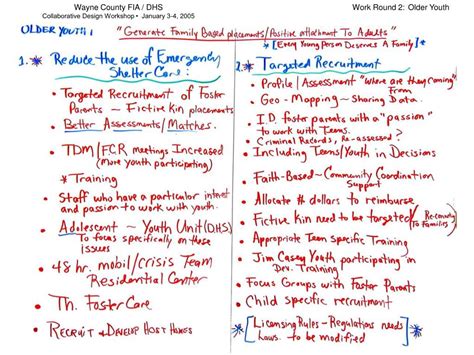 Wayne County FIA / DHS
Collaborative Design Workshop • January 3-4, 2005
Work Round 2: Older Youth
OLDER YOUTH: "Generate Family Based placements/Positive attachment To Adults"
*[Every Young Person Deserves A Family]*
1. * Reduce the use of Emergency
Shelter Care:
• Targeted Recruitment of Foster
Parents ~ Fictive Kin placements
• Better Assessments/Matches.
• TDM/FCR meetings Increased
(More youth participating)
* Training
• Staff who have a particular interest
and passion to work with youth.
• Adolescent ~ Youth Unit (DHS)
To focus specifically on these
issues
• 48 hr. mobil/crisis Team
Residential Center
• Th. Foster Care
• Recruit & Develop Host Homes
2. * Targeted Recruitment
• Profile/Assessment "Where are they Coming"
From
• Geo-Mapping ~ Sharing Data.
• I.D. foster parents with a "passion"
to work with Teens.
• Criminal Records, Re-assessed?
• Including Teens/Youth in Decisions
• Faith-Based ~ Community Coordination
Support
• Allocate # dollars to reimburse
• Fictive Kin need to be targeted/
To Families
• Appropriate Teen specific Training
• Jim Casey Youth participating in
Dev. Training
• Focus Groups with Foster Parents
• Child specific recruitment
*[Licensing Rules ~ Regulations needs
Laws. to be modified]*